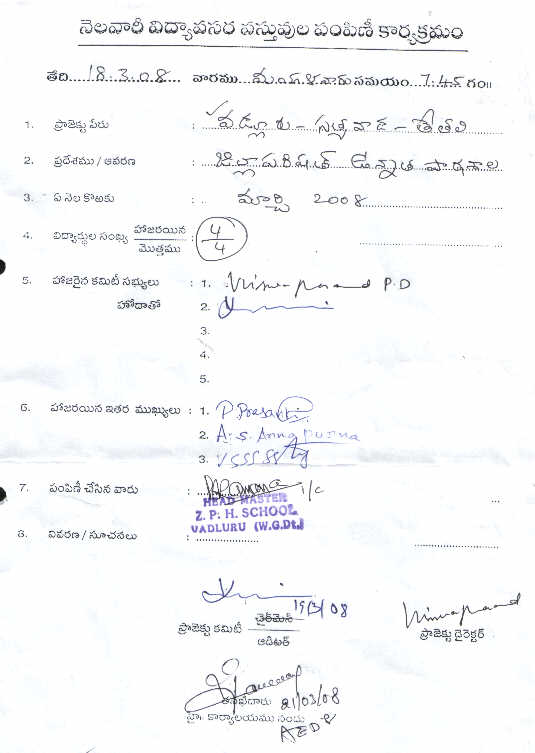 నెలవారీ విద్యావసర వస్తువుల పంపిణీ కార్యక్రమం
తేది....18.3.08... వారము...మంగళవారం సమయం...7.45 గం॥
1. ప్రాజెక్టు పేరు : వడ్లూరు -
2. ప్రదేశము / ఆవరణ : జిల్లాపరిషత్ ఉన్నత పాఠశాల
3. ఏ నెల కొఱకు : .. మార్చి 2008
4. విద్యార్థుల సంఖ్య హాజరయిన / మొత్తము : 4/4
5. హాజరైన కమిటీ సభ్యులు : 1. P.D
హోదాతో 2.
3.
4.
5.
6. హాజరయిన ఇతర ముఖ్యులు : 1. P Prasanthi
2. A. S. Anna purna
3.
7. పంపిణీ చేసిన వారు : I/c
HEAD MASTER
Z. P. H. SCHOOL
VADLURU (W.G.Dt.)
8. వివరణ / సూచనలు :
19/3/08
ప్రాజెక్టు కమిటీ చైర్‌మెన్ / ఆడిటర్
ప్రాజెక్టు డైరెక్టర్
21/03/08
కార్యాలయము నందు